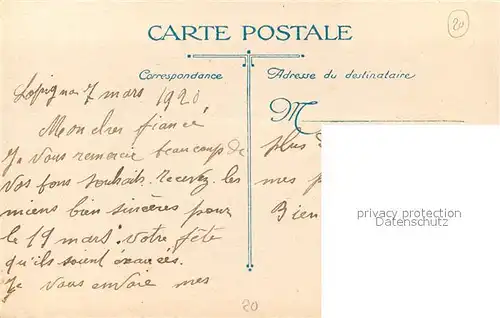 20
CARTE POSTALE
Correspondance
Adresse du destinataire
7 mars 1920
Mon cher fiancé
Je vous remercie beaucoup de
vos bons souhaits. recevez les
miens bien sincères pour
le 19 mars. votre fête
qu'ils soient éxaucés.
Je vous envoie mes
M
plus
mes
Bien
privacy protection
Datenschutz
20